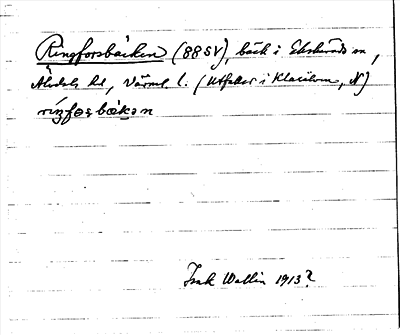 Ringforsbäcken (88SV), bäck i Ekshärads sn,
Älvdals hd, Värml. l. (Utfaller i Klarälven, N)
ríŋfɷșbækən
Isak Wallin 1913?